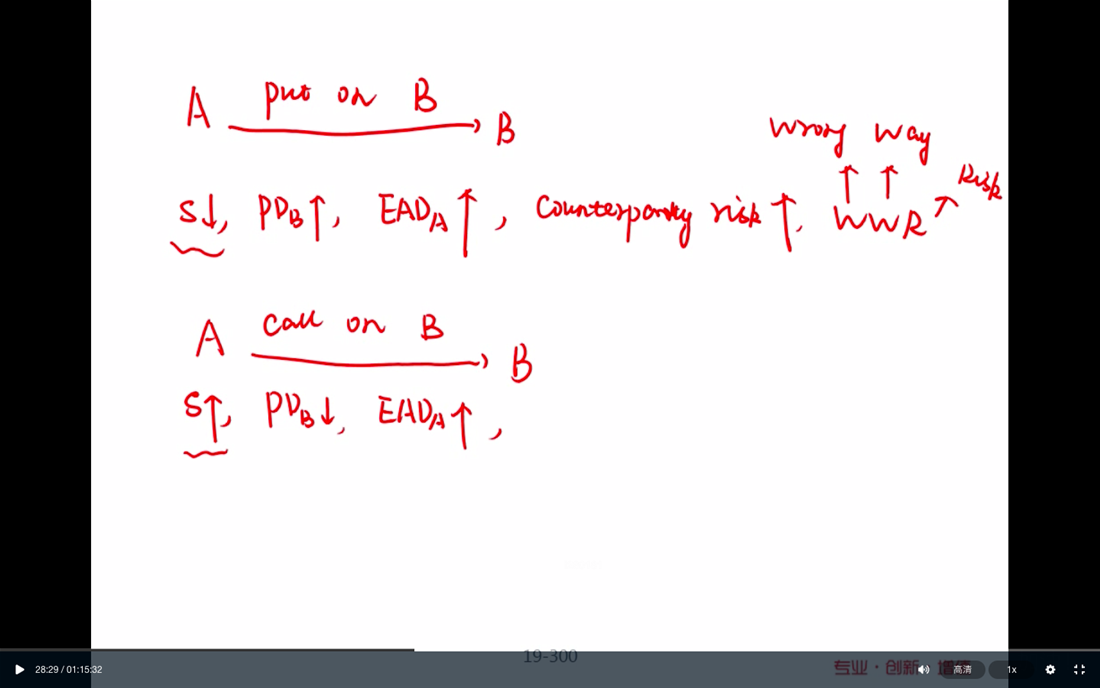 A put on B B
Wrong Way
Risk
S↓, PD_B↑, EAD_A↑, Counterparty risk↑, WWR
A call on B B
S↑, PD_B↓, EAD_A↑,
19-300
28:29 / 01:15:32
专业·创新·
高清
1x